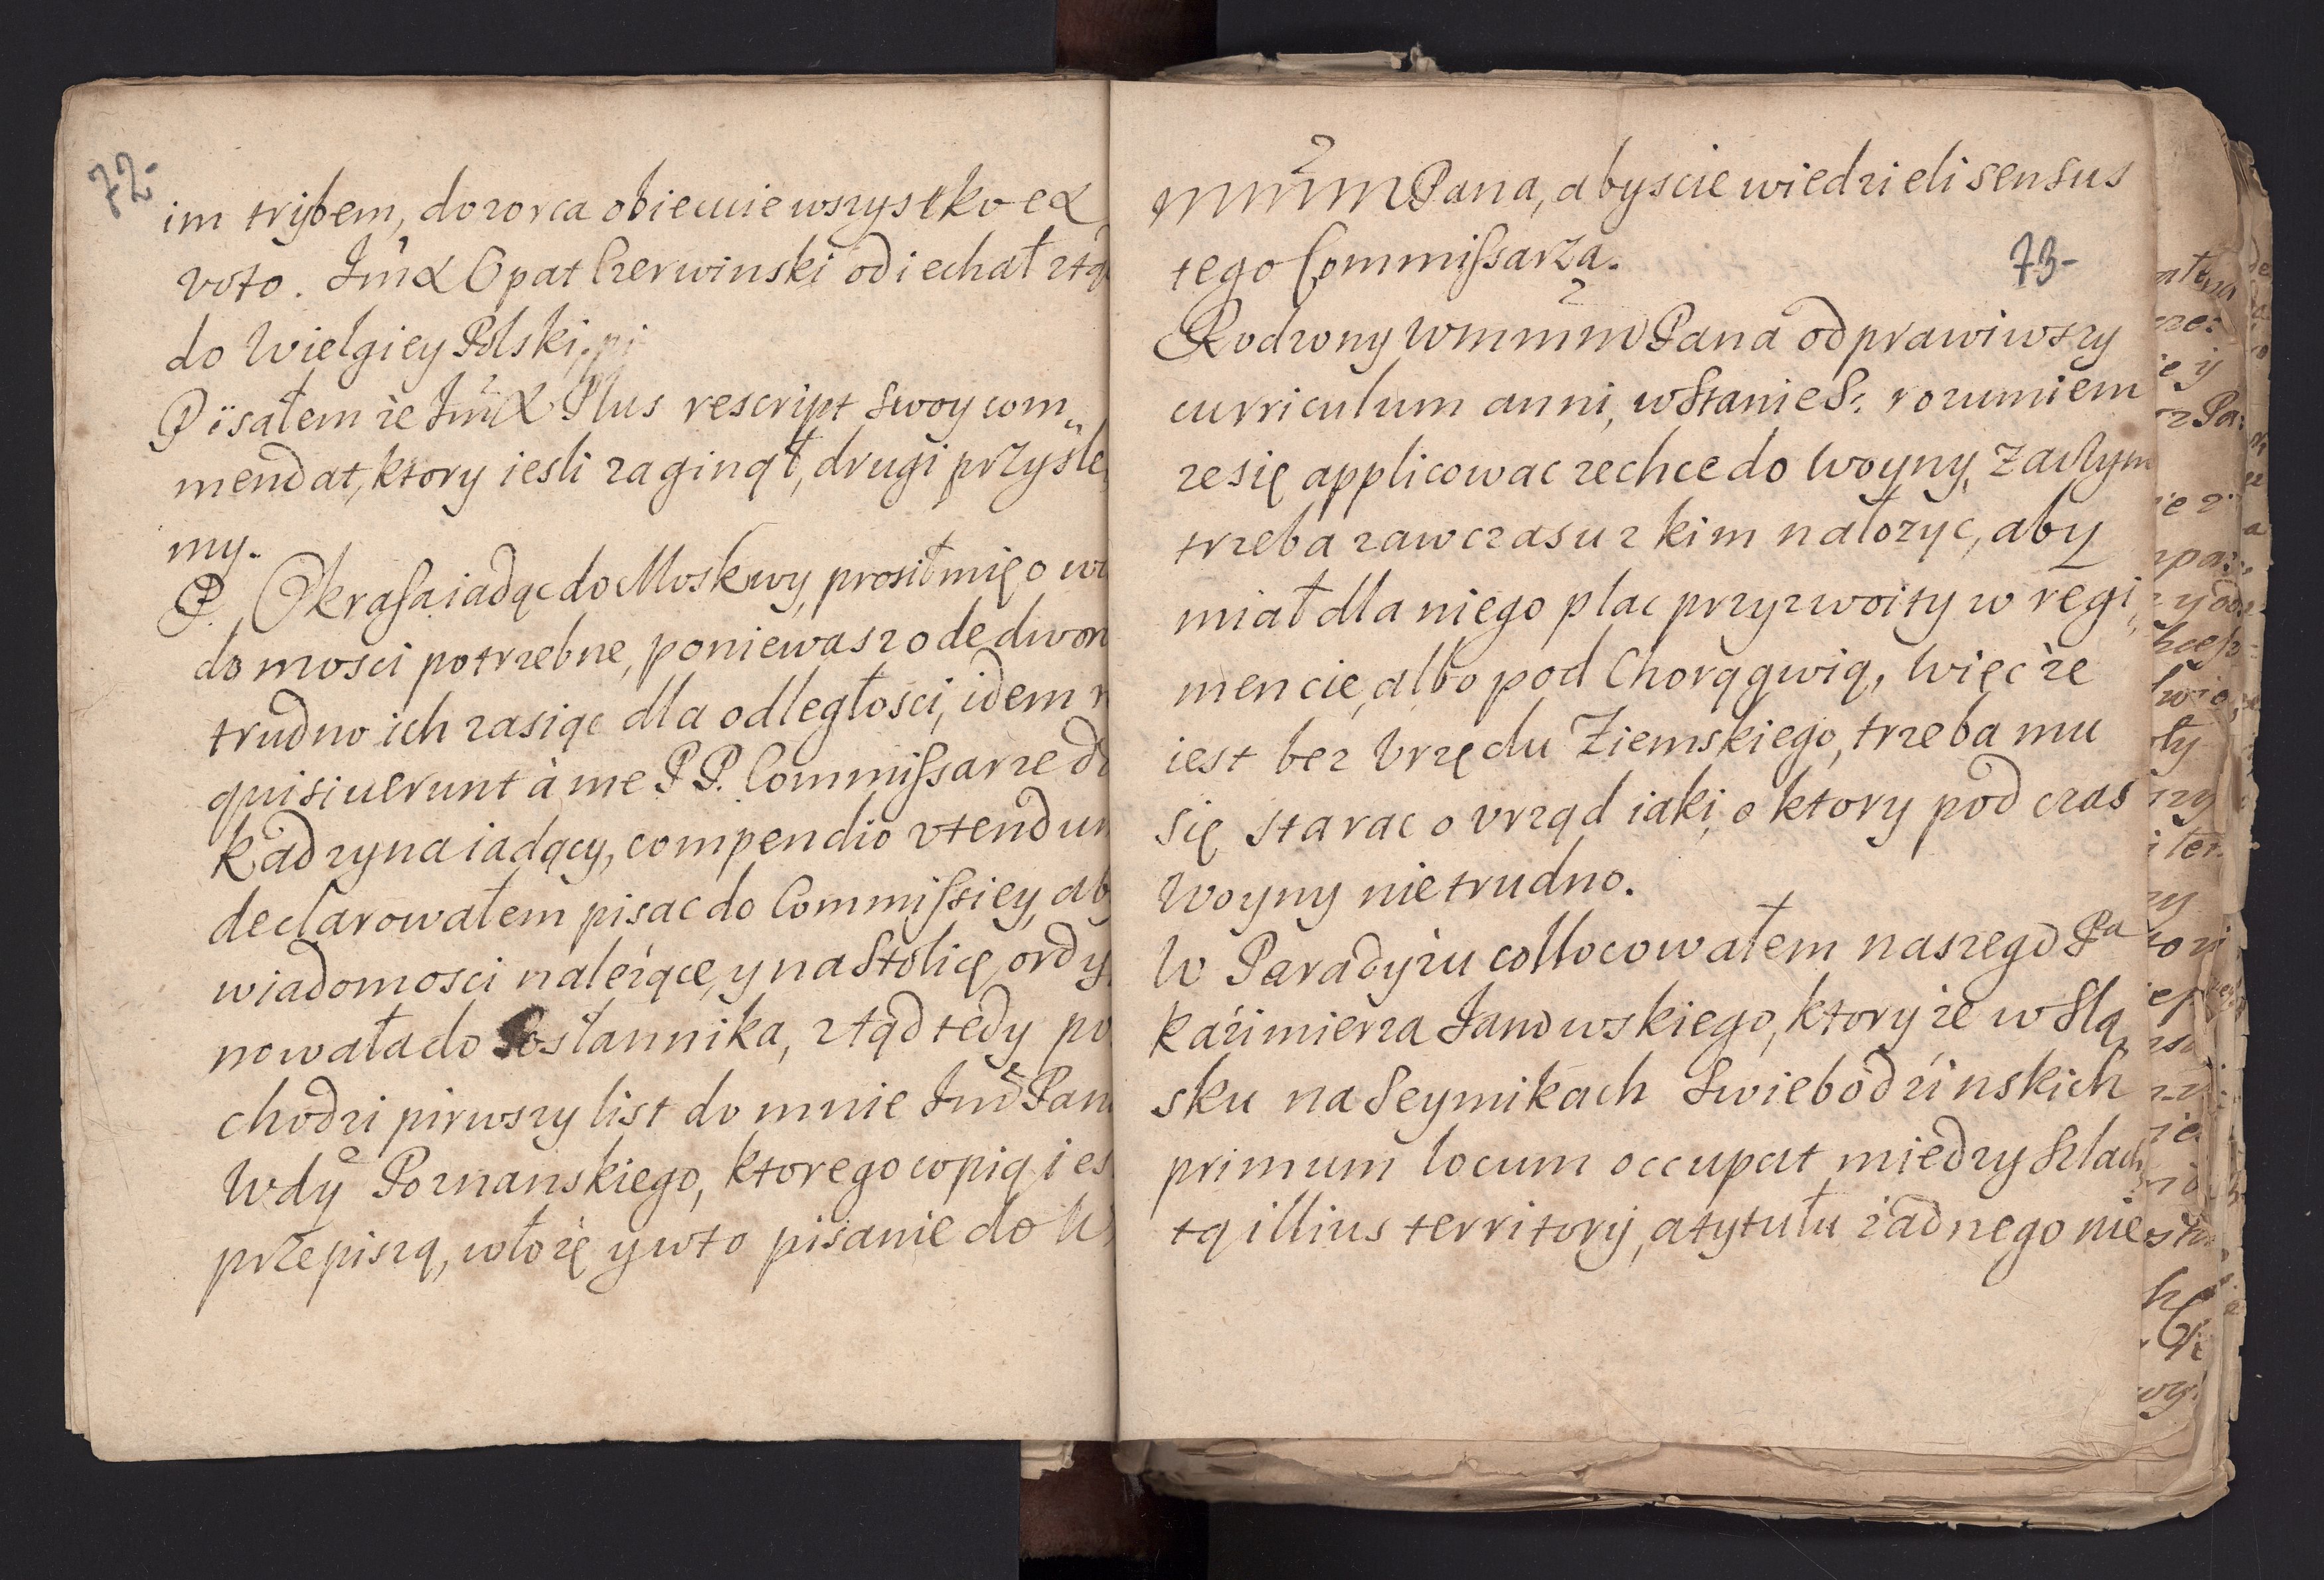 72.
im trybem, dozorca obiecuie wszystko ex
voto. Jmx Opat Czerwinski odiechał ztąd
do Wielgiey Polski.
Pisałem że Jmx Plus rescript swoy com„
mendat, ktory iesli zaginął, drugi przysle
my.
P. Okrasa iadąc do Moskwy, prosił mię o wia
domosci potrzebne, poniewasz ode dworu
trudno ich zasiąc dla odległosci, idem
quisiuerunt à me P P. Commissarze do
Kadzyna iadący, compendio vtendum
declarowałem pisac do Commissiey, aby
wiadomosci należące, y na Stolicę ordy
nowała do Posłannika, ztąd tedy po
chodzi pirwszy list do mnie Jmo Pana
Wdy Poznanskiego, ktorego copią iesli
przepiszą, włożę y w to pisanie do W
MmmPana, abyscie wiedzieli sensus
tego Commissarza.
73-
Rodzony WmmmPana odprawiwszy
curriculum anni, w Stanie S: rozumiem
ze się applicowac zechce do Woyny, zaczym
trzeba zawczasu z kim nałożyc, aby
miał dla niego plac przyzwoity w regi„
mencie, albo pod Chorągwią, Więc że
iest bez Vrzędu Ziemskiego, trzeba mu
się starac o vrząd iaki, o ktory pod czas
Woyny nie trudno.
W Paradyżu collocowałem naszego Pa
Kaźimierza Janowskiego, ktory że w Slą
sku na Seymikach Swiebodźinskich
primum locum occupat miedzy Szlach
tą illius territorij, a tytułu żadnego nie